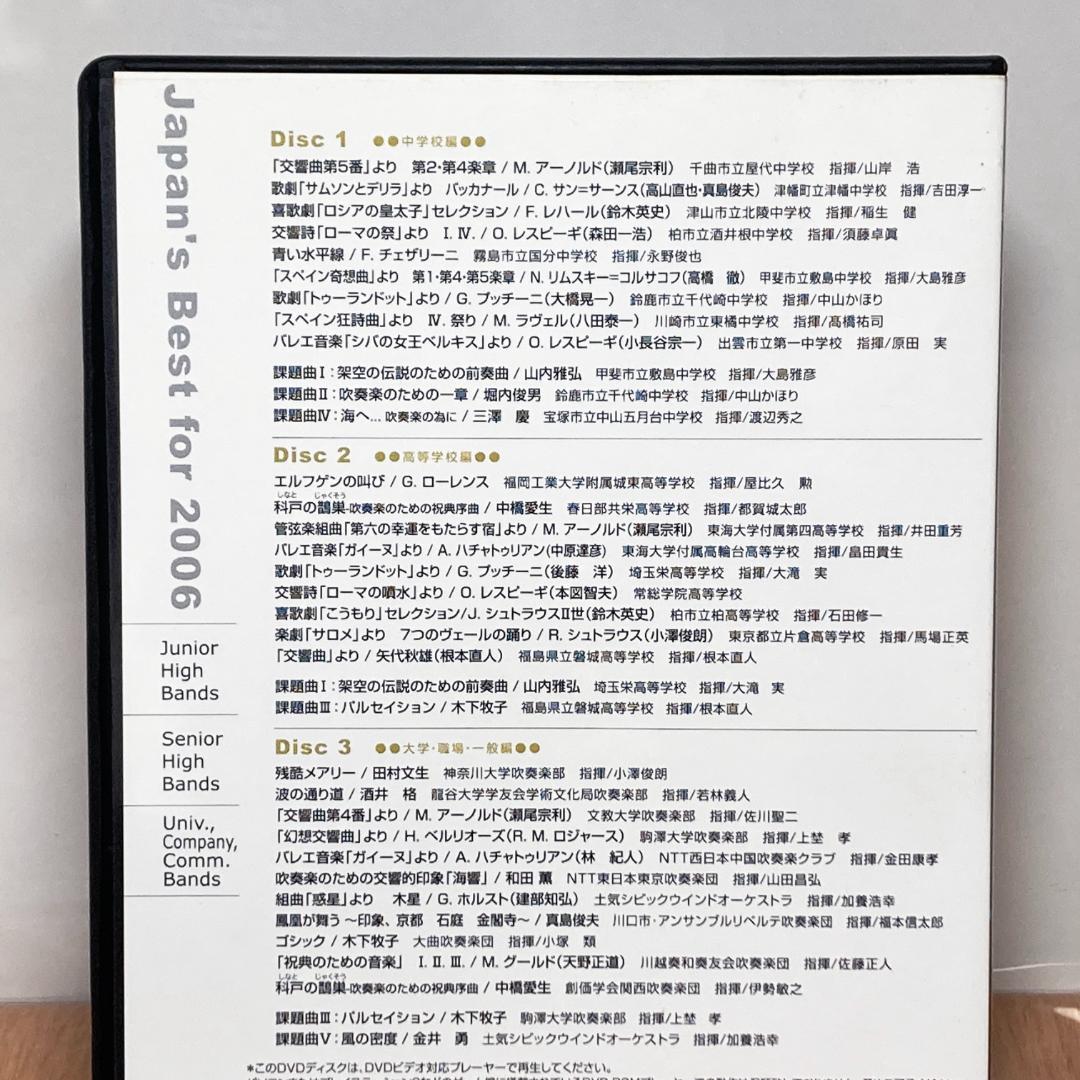 Japan's Best for 2006
Junior
High
Bands
Senior
High
Bands
Univ.,
Company,
Comm.
Bands
Disc 1 ●●中学校編●●
「交響曲第5番」より 第2・第4楽章 / M. アーノルド(瀬尾宗利) 千曲市立屋代中学校 指揮/山岸 浩
歌劇「サムソンとデリラ」より バッカナール / C. サン=サーンス(高山直也・真島俊夫) 津幡町立津幡中学校 指揮/吉田淳一
喜歌劇「ロシアの皇太子」セレクション / F. レハール(鈴木英史) 津山市立北陵中学校 指揮/稲生 健
交響詩「ローマの祭」より I. IV. / O. レスピーギ(森田一浩) 柏市立酒井根中学校 指揮/須藤卓眞
青い水平線 / F. チェザリーニ 霧島市立国分中学校 指揮/永野俊也
「スペイン奇想曲」より 第1・第4・第5楽章 / N. リムスキー=コルサコフ(高橋 徹) 甲斐市立敷島中学校 指揮/大島雅彦
歌劇「トゥーランドット」より / G. プッチーニ(大橋晃一) 鈴鹿市立千代崎中学校 指揮/中山かほり
「スペイン狂詩曲」より Ⅳ. 祭り / M. ラヴェル(八田泰一) 川崎市立東橘中学校 指揮/髙橋祐司
バレエ音楽「シバの女王ベルキス」より / O. レスピーギ(小長谷宗一) 出雲市立第一中学校 指揮/原田 実
課題曲Ⅰ:架空の伝説のための前奏曲 / 山内雅弘 甲斐市立敷島中学校 指揮/大島雅彦
課題曲Ⅱ:吹奏楽のための一章 / 堀内俊男 鈴鹿市立千代崎中学校 指揮/中山かほり
課題曲Ⅳ:海へ... 吹奏楽の為に / 三澤 慶 宝塚市立中山五月台中学校 指揮/渡辺秀之
Disc 2 ●●高等学校編●●
エルフゲンの叫び / G. ローレンス 福岡工業大学附属城東高等学校 指揮/屋比久 勲
しなと じゃくそう
科戸の鵲巣-吹奏楽のための祝典序曲 / 中橋愛生 春日部共栄高等学校 指揮/都賀城太郎
管弦楽組曲「第六の幸運をもたらす宿」より / M. アーノルド(瀬尾宗利) 東海大学付属第四高等学校 指揮/井田重芳
バレエ音楽「ガイーヌ」より / A. ハチャトゥリアン(中原達彦) 東海大学付属高輪台高等学校 指揮/畠田貴生
歌劇「トゥーランドット」より / G. プッチーニ(後藤 洋) 埼玉栄高等学校 指揮/大滝 実
交響詩「ローマの噴水」より / O. レスピーギ(本図智夫) 常総学院高等学校
喜歌劇「こうもり」セレクション/J. シュトラウスⅡ世(鈴木英史) 柏市立柏高等学校 指揮/石田修一
楽劇「サロメ」より 7つのヴェールの踊り / R. シュトラウス(小澤俊朗) 東京都立片倉高等学校 指揮/馬場正英
「交響曲」より / 矢代秋雄(根本直人) 福島県立磐城高等学校 指揮/根本直人
課題曲Ⅰ:架空の伝説のための前奏曲 / 山内雅弘 埼玉栄高等学校 指揮/大滝 実
課題曲Ⅲ:パルセイション / 木下牧子 福島県立磐城高等学校 指揮/根本直人
Disc 3 ●●大学・職場・一般編●●
残酷メアリー / 田村文生 神奈川大学吹奏楽部 指揮/小澤俊朗
波の通り道 / 酒井 格 龍谷大学学友会学術文化局吹奏楽部 指揮/若林義人
「交響曲第4番」より / M. アーノルド(瀬尾宗利) 文教大学吹奏楽部 指揮/佐川聖二
「幻想交響曲」より / H. ベルリオーズ(R. M. ロジャース) 駒澤大学吹奏楽部 指揮/上埜 孝
バレエ音楽「ガイーヌ」より / A. ハチャトゥリアン(林 紀人) NTT西日本中国吹奏楽クラブ 指揮/金田康孝
吹奏楽のための交響的印象「海響」 / 和田 薫 NTT東日本東京吹奏楽団 指揮/山田昌弘
組曲「惑星」より 木星 / G. ホルスト(建部知弘) 土気シビックウインドオーケストラ 指揮/加養浩幸
鳳凰が舞う ～印象、京都 石庭 金閣寺～ / 真島俊夫 川口市・アンサンブルリベルテ吹奏楽団 指揮/福本信太郎
ゴシック / 木下牧子 大曲吹奏楽団 指揮/小塚 類
「祝典のための音楽」 I. II. III. / M. グールド(天野正道) 川越奏和奏友会吹奏楽団 指揮/佐藤正人
しなと じゃくそう
科戸の鵲巣-吹奏楽のための祝典序曲 / 中橋愛生 創価学会関西吹奏楽団 指揮/伊勢敏之
課題曲Ⅲ:パルセイション / 木下牧子 駒澤大学吹奏楽部 指揮/上埜 孝
課題曲Ⅴ:風の密度 / 金井 勇 土気シビックウインドオーケストラ 指揮/加養浩幸
*このDVDディスクは、DVDビデオ対応プレーヤーで再生してください。